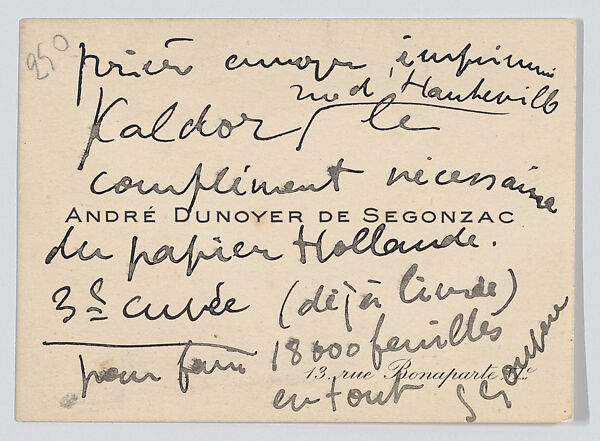 250
prière envoyer imprimerie
rue d'Hauteville
Kaldor, le
complément nécessaire
ANDRÉ DUNOYER DE SEGONZAC
du papier Hollande.
3e cuvée (déjà livrée)
pour faire 18000 feuilles
13, rue Bonaparte.
en tout Segonzac